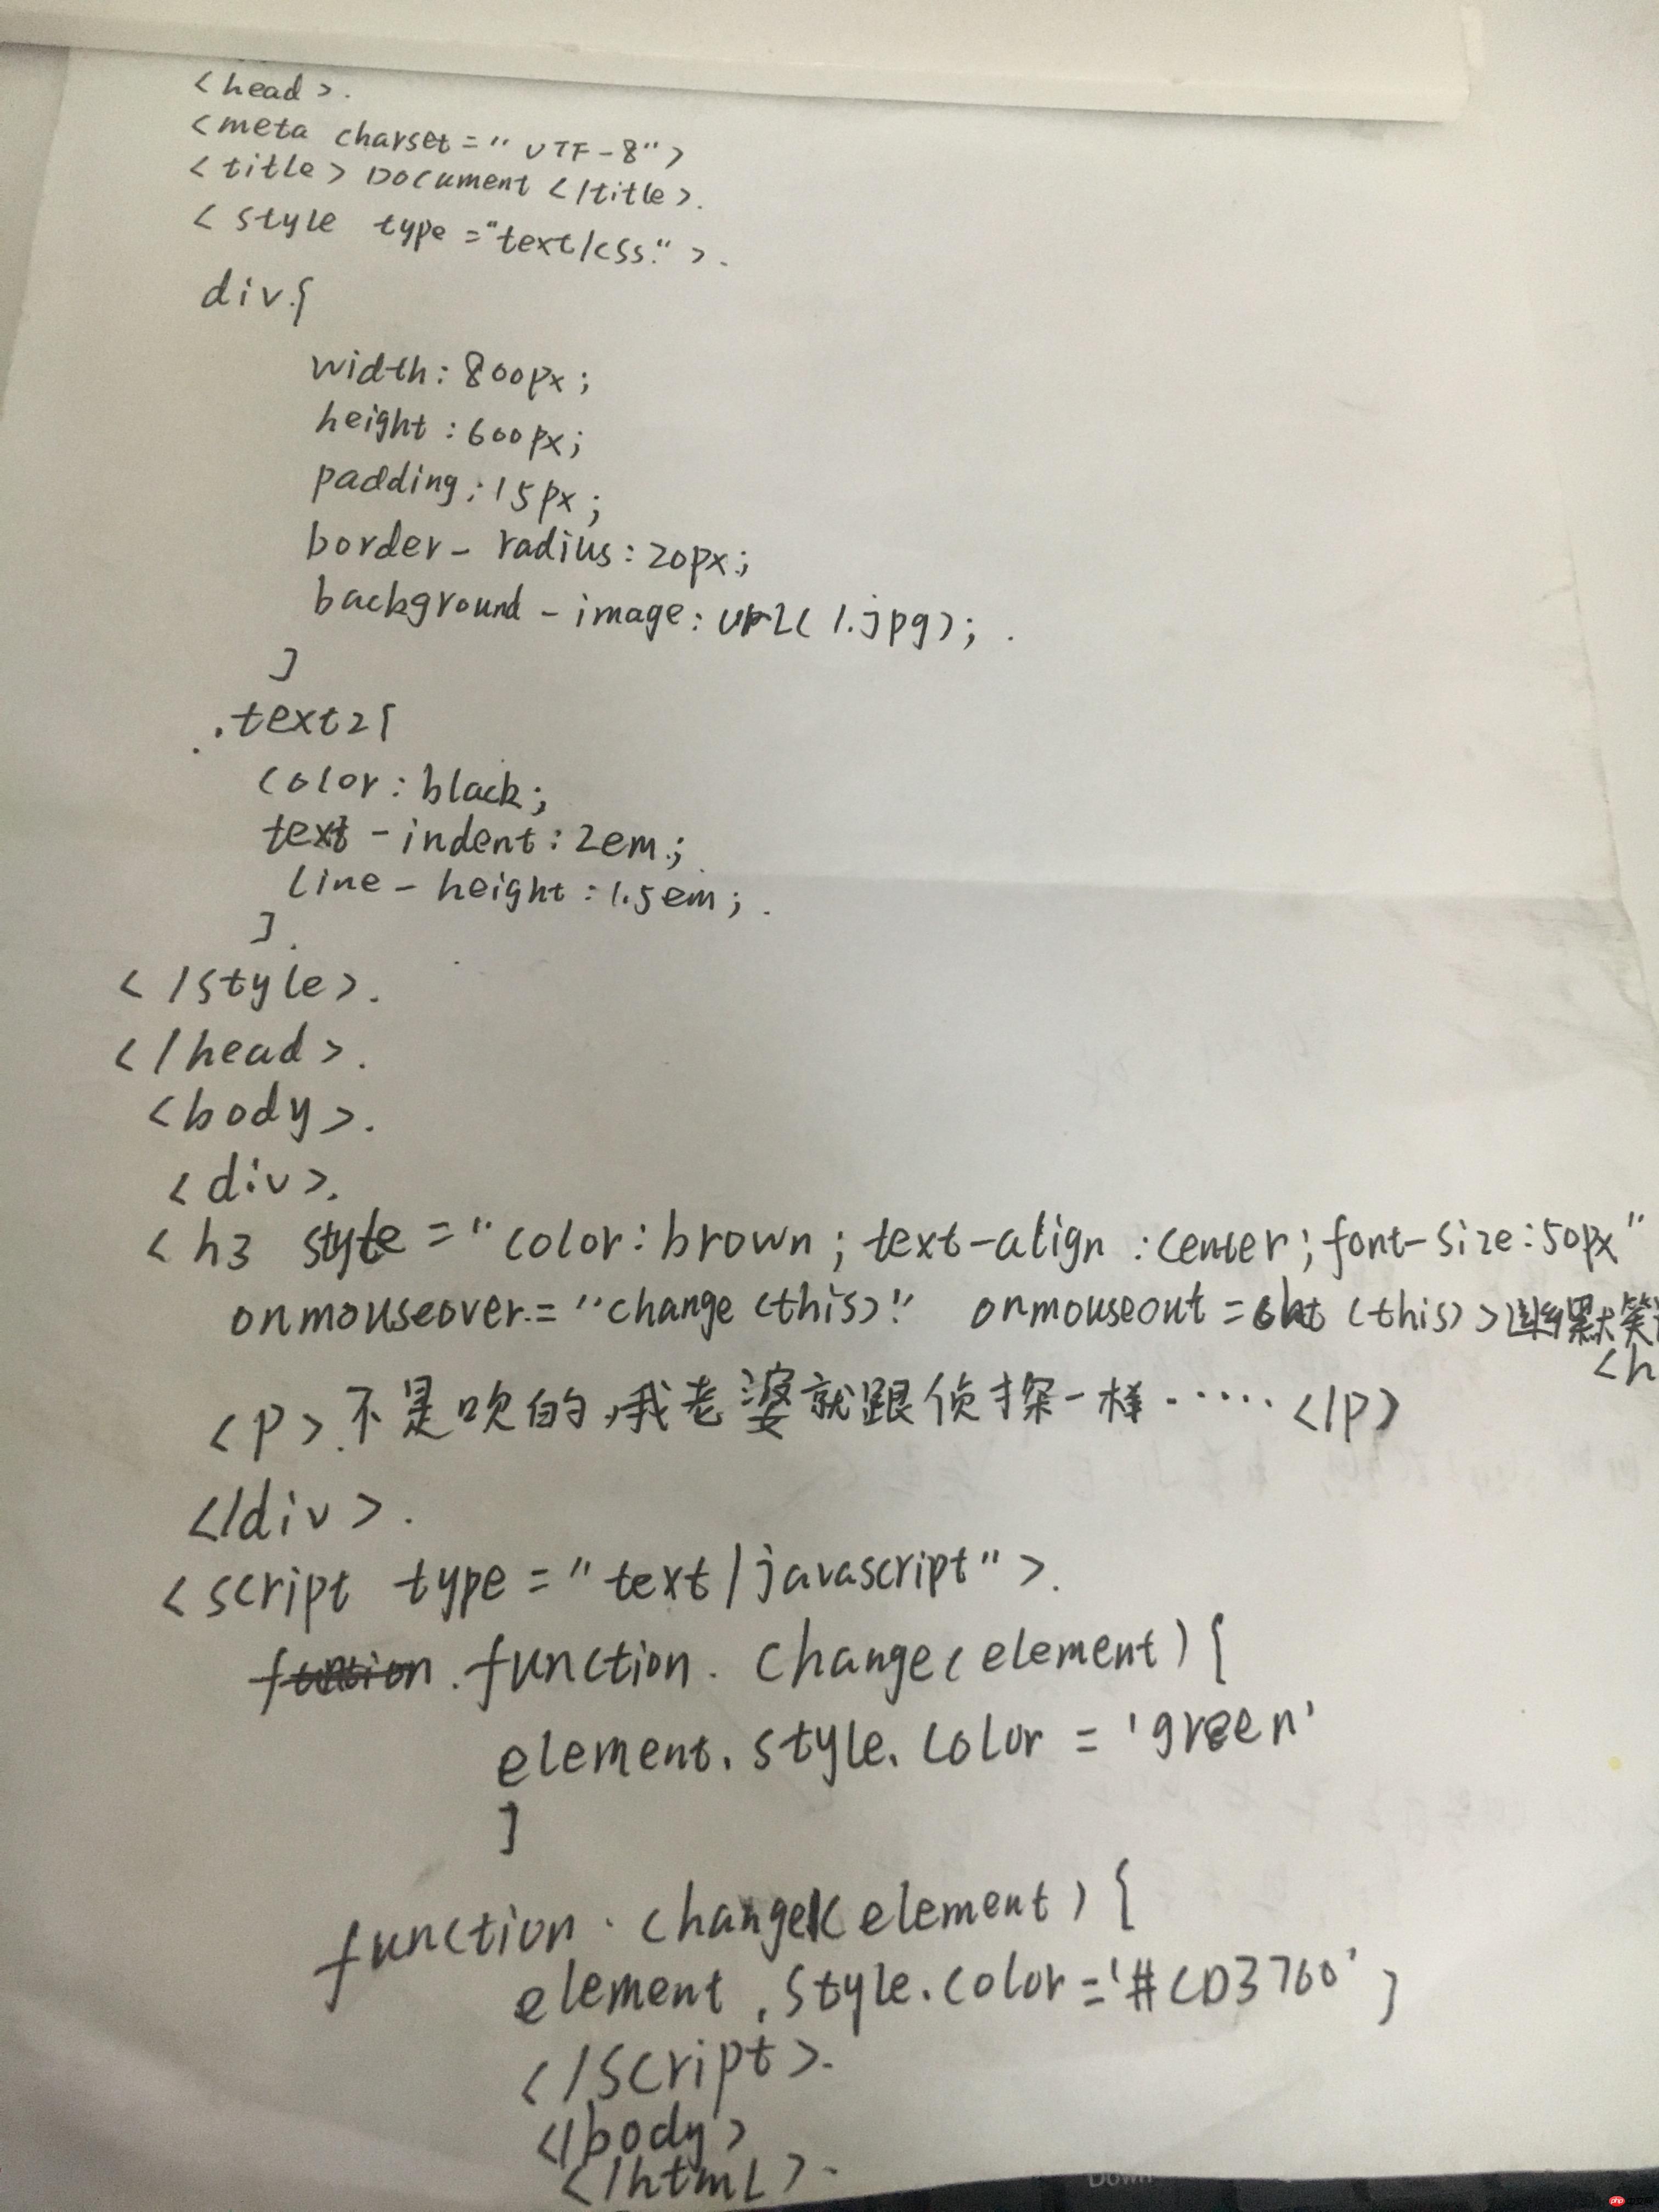 <head>.
<meta charset="UTF-8">
<title>Document</title>.
<style type="text/css">.
div{
width:800px;
height:600px;
padding:15px;
border-radius:20px;
background-image:url(1.jpg);.
}
.text2{
color:black;
text-indent:2em;
line-height:1.5em;.
}.
</style>.
</head>.
<body>.
<div>.
<h3 style="color:brown;text-align:center;font-size:50px"
onmouseover="change(this)" onmouseout= (this)>幽默笑
<h
<p>不是吹的,我老婆就跟侦探一样······</p>
</div>.
<script type="text/javascript">.
function change(element){
element.style.color='green'
}
function change(element){
element.style.color='#CD3700'}
</script>.
</body>
</html>.
Down
php